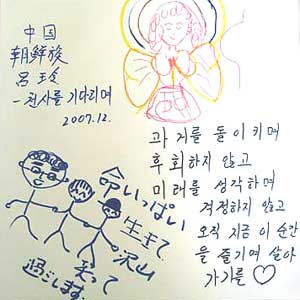 中国
朝鮮族
呂
-천사를 기다리며
2007.12.
과거를 돌이키며
후회하지 않고
미래를 생각하며
걱정하지 않고
오직 지금 이 순간
을 즐기며 살아
가기를 ♡
命いっぱい
生きて
沢山
笑って
過ごします。